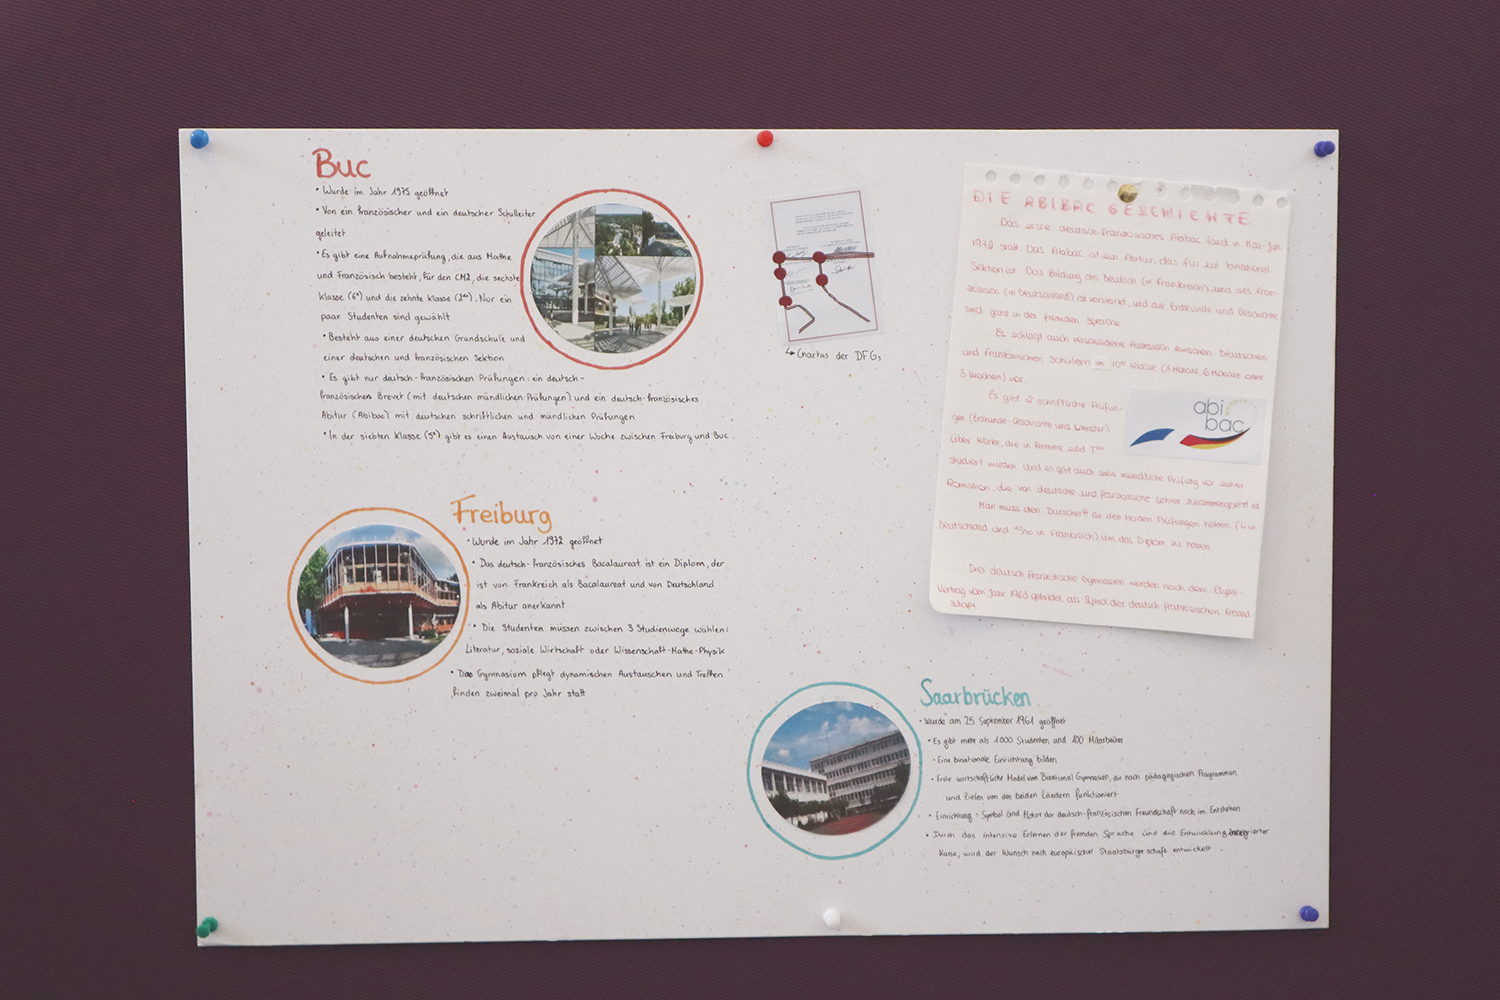 Buc
• Wurde im Jahr 1975 geöffnet
• Von ein französischer und ein deutscher Schulleiter
geleitet
• Es gibt eine Aufnahmeprüfung, die aus Mathe
und Französisch besteht, für den CM2, die sechste
Klasse (6e) und die zehnte Klasse (2de). Nur ein
paar Studenten sind gewählt
• Besteht aus einer deutschen Grundschule und
einer deutschen und französischen Sektion
• Es gibt nur deutsch-französischen Prüfungen: ein deutsch-
französisches Brevet (mit deutschen mündlichen Prüfungen) und ein deutsch-französisches
Abitur (Abibac) mit deutschen schriftlichen und mündlichen Prüfungen
• In der siebten Klasse (5e) gibt es einen Austausch von einer Woche zwischen Freiburg und Buc.
Freiburg
• Wurde im Jahr 1972 geöffnet
• Das deutsch-französisches Bacalaureat ist ein Diplom, der
ist von Frankreich als Bacalaureat und von Deutschland
als Abitur anerkannt
• Die Studenten müssen zwischen 3 Studienwege wählen:
Literatur, soziale Wirtschaft oder Wissenschaft-Mathe-Physik
• Das Gymnasium pflegt dynamischen Austauschen und Treffen
finden zweimal pro Jahr statt
↳ Chartas der DFGs
DIE ABIBAC GESCHICHTE
Das erste deutsch-französisches Abibac fand in Mai-Juni
1972 statt. Das Abibac ist ein Abitur, das für ein binational
Sektion ist. Das Bildung des Deutsch (in Frankreich) und des Fran-
zösisch (in Deutschland) ist verstärkt, und die Erdkunde und Geschichte
sind ganz in der fremden Sprache.
Es schlägt auch verschiedene Austausch zwischen Deutschen
und Französischen Schülern im 10en Klasse (3 Monate, 6 Monate oder
3 Wochen) vor.
Es gibt 2 schriftliche Prüfun-
gen (Erdkunde-Geschichte und Literatur)
über Werke, die in Première und Tale
studiert wurden. Und es gibt auch eine mündliche Prüfung vor einer
die von deutsche und französische Lehrer zusammengesetzt ist
Man muss den Durschnitt an den beiden Prüfungen haben (4 in
Deutschland und 10/20 in Frankreich) um das Diplom zu haben.
Drei deutsch französische Gymnasien werden nach dem Elysee-
Vertrag vom Jahr 1963 gebildet, als Symbol der deutsch-französischen Freund-
schaft
abi
bac
Saarbrücken
• Wurde am 25 September 1961 geöffnet
• Es gibt mehr als 1000 Studenten und 100 Mitarbeiter
• Eine binationale Einrichtung bilden
• Erste wirtschaftliche Model vom Binational Gymnasien, die nach pädagogischen Programmen
und Zielen von den beiden Ländern funktioniert
• Einrichtung = Symbol und Motor der deutsch-französischen Freundschaft noch im Entstehen
• Durch das intensive Erlernen der fremden Sprache und die Entwicklung integrierter
Kurse, wird der Wunsch nach europäischer Staatsbürgerschaft entwickelt.